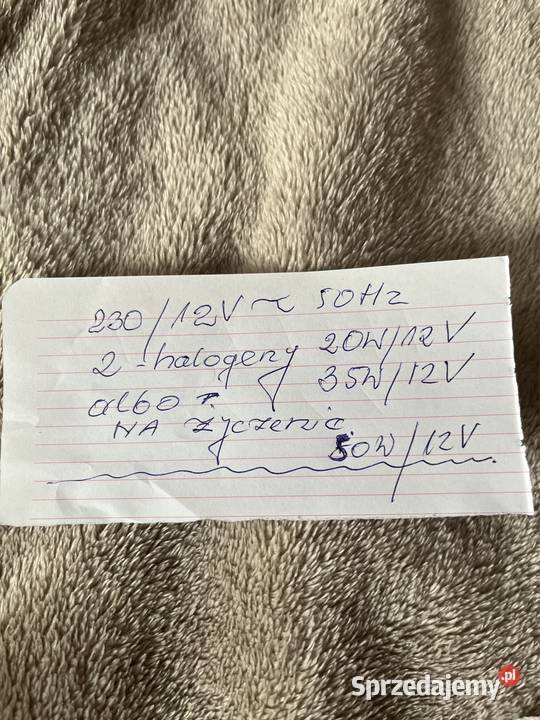 230/12V ~ 50Hz
2 - halogeny 20W/12V
albo 35W/12V
NA życzenie
50W/12V
Sprzedajemy.pl